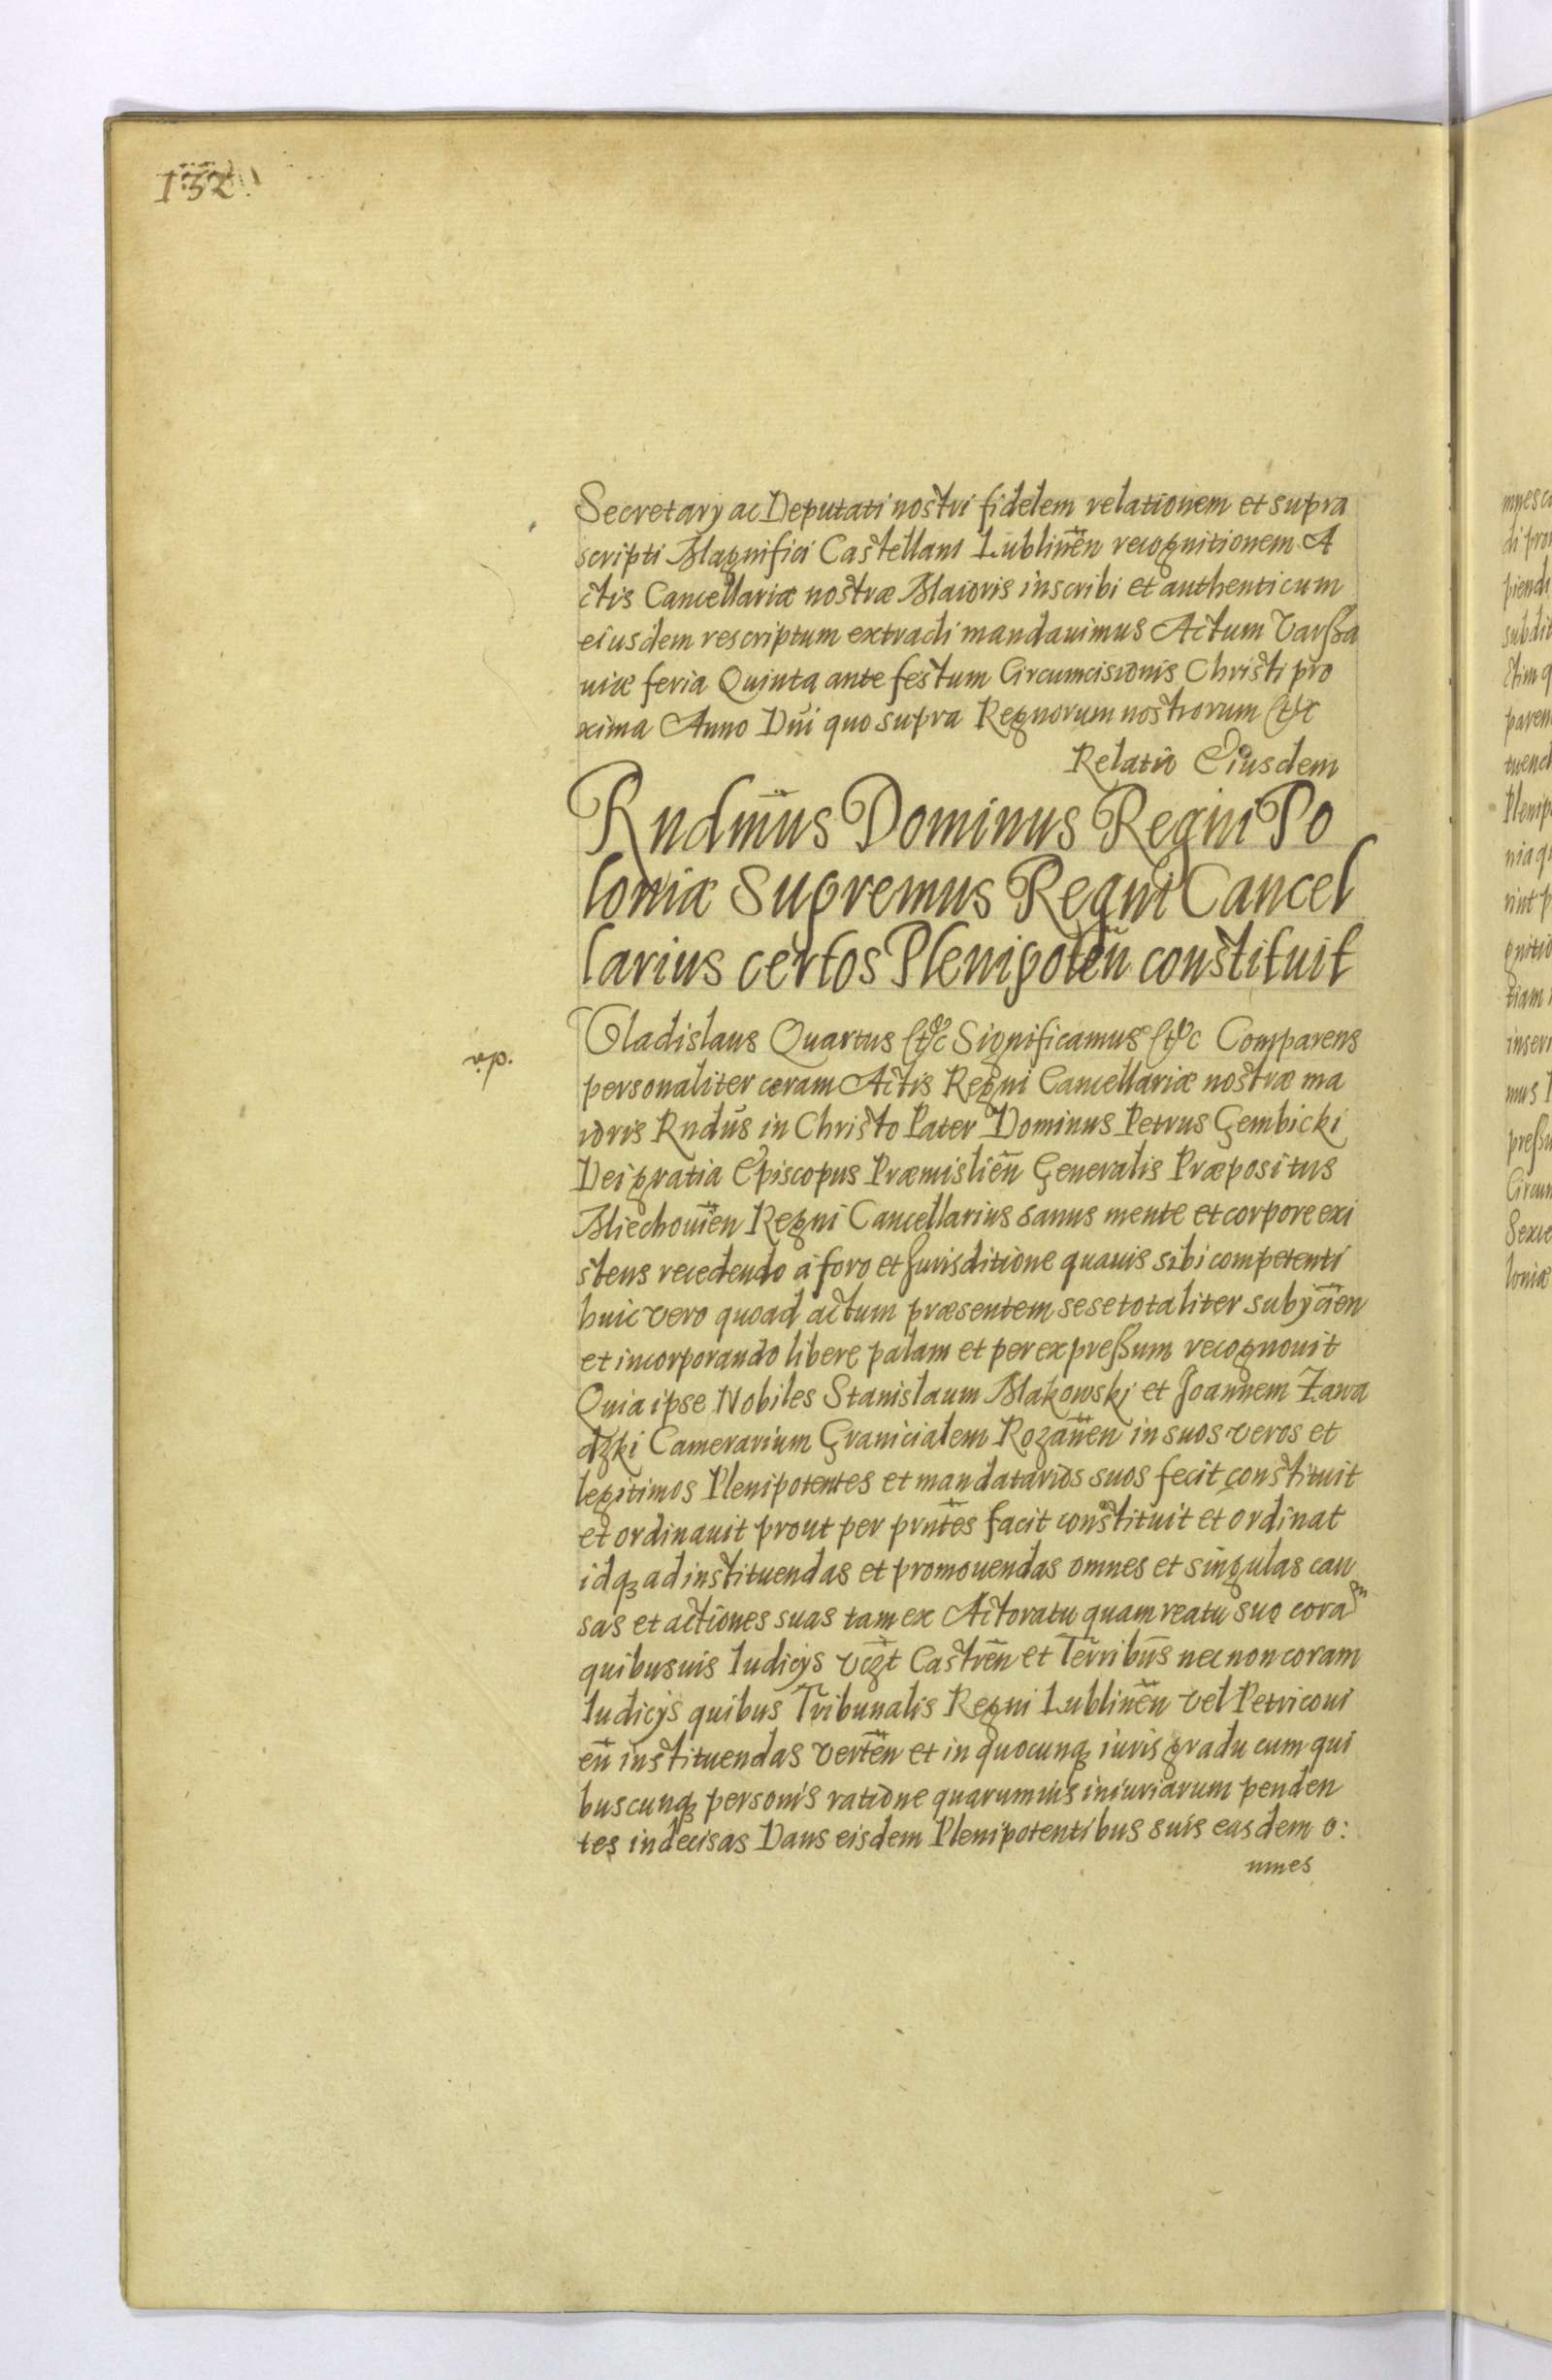 132
Secretarÿ ac Deputati nostri fidelem relationem et supra
scripti Magnifici Castellani Lublineñ recognitionem A
ctis Cancellariæ nostræ Maioris inscribi et authenticum
eiusdem rescriptum extradi mandauimus Actum Varßa
uiæ feria Quinta ante festum Circumcisionis Christi pro
xima Anno Dñi quo supra Regnorum nostrorum &c
Relatio Eiusdem
Rndm̃us Dominus Regni Po
loniæ Supremus Regni Cancel
larius certos Plenipoteñ constituit
Vladislaus Quartus &c Significamus &c Comparens
personaliter coram Actis Regni Cancellariæ nostræ ma
ioris Rndũs in Christo Pater Dominus Petrus Gembicki
Dei gratia Episcopus Præmislieñ Generalis Præpositus
Miechouieñ Regni Cancellarius sanus mente et corpore exi
stens recedendo a foro et Jurisditione quauis sibi competenti
huic vero quoad actum præsentem sese totaliter subÿcieñ
et incorporando libere palam et per expreßum recognouit
Quia ipse Nobiles Stanislaum Makowski et Joannem Zawa
dzki Camerarium Granicialem Rozaneñ in suos veros et
legitimos Plenipotentes et mandatarios suos fecit constituit
et ordinauit prout per prñtes facit constituit et ordinat
idqꝫ ad instituendas et promouendas omnes et singulas cau
sas et actiones suas tam ex Actoratu quam reatu suo coram
quibusuis Iudicÿs vꝫt Castreñ et Terribũs nec non coram
Iudicÿs quibus Tribunalis Regni Lublineñ vel Petricoui
eñ instituendas verteñ et in quocunqꝫ iuris gradu cum qui
buscunqꝫ personis ratione quarumuis iniuriarum penden
tes indecisas Dans eisdem Plenipotentibus suis easdem o:
mnes